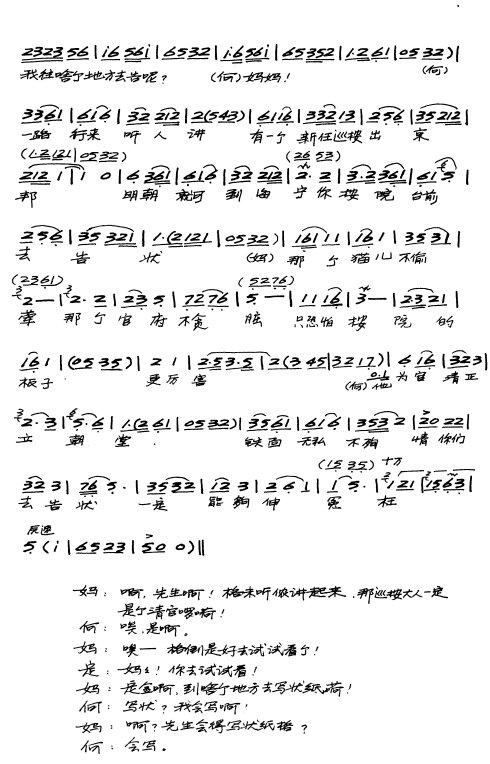 23235 6 | i6 56i | 65 32 | i·6 56i | 65 352 | 1·2 61 | 05 32) |
我往啥个地方去告呢？ (何) 妈妈！ (何)
33 61 | 61 6 | 32 212 | 2(543) | 61 16 | 332 13 | 2·56 | 35 212 |
一路 行来 听 人 讲 有一个 新任巡按 出 京
(1·2121 | 0532) (26 53)
212 1 | 1 0 | 6 361 | 61 6 | 32 212 | 2· 2 | 3·2 361 | 61 5 |
邦 明朝 就可 到 海 宁 你 按 院 台前
2·56 | 35 321 | 1·(2121 | 0532) | 161 11 | 161 1 | 35 31 |
去 告 状 (妈) 那 个 猫儿 不偷
(2361) (5276)
2 — | 2· 2 | 2 3 5 | 72 76 | 5 — | 11 16 | 3 — | 2·3 21 |
荤 那个 官府 不贪 脏 只恐怕 按 院 的
16 1 | (05 35) | 2 1 | 2·53·5 | 2(3 45 | 32 17) | 6 16 | 32 3 |
板子 更厉 害 (何) 他 为官 清正
2· 3 | 5· 6 | 1·(2 61 | 0532) | 35 61 | 61 6 | 353 2 | 20 22 |
立 朝 堂 铁面 无私 不徇 情 你们
(15 35) 十万
32 3 | 76 5· | 35 32 | 12 3 | 2 6 1 | 1 5· | 121 | 1563 |
去 告状 一定 能 夠 伸 冤 枉
5 (i | 65 23 | 50 0) ||
妈：啊，先生啊！格末听侬讲起来，那巡按大人一定
是个清官啰嗬！
何：唉，是啊。
妈：噢一 格倒是好去试试看个！
是：妈么！你去试试看！
妈：是金啊，到啥个地方去写状纸嗬！
何：写状？我会写啊！
妈：啊？先生会得写状纸格？
何：会写。